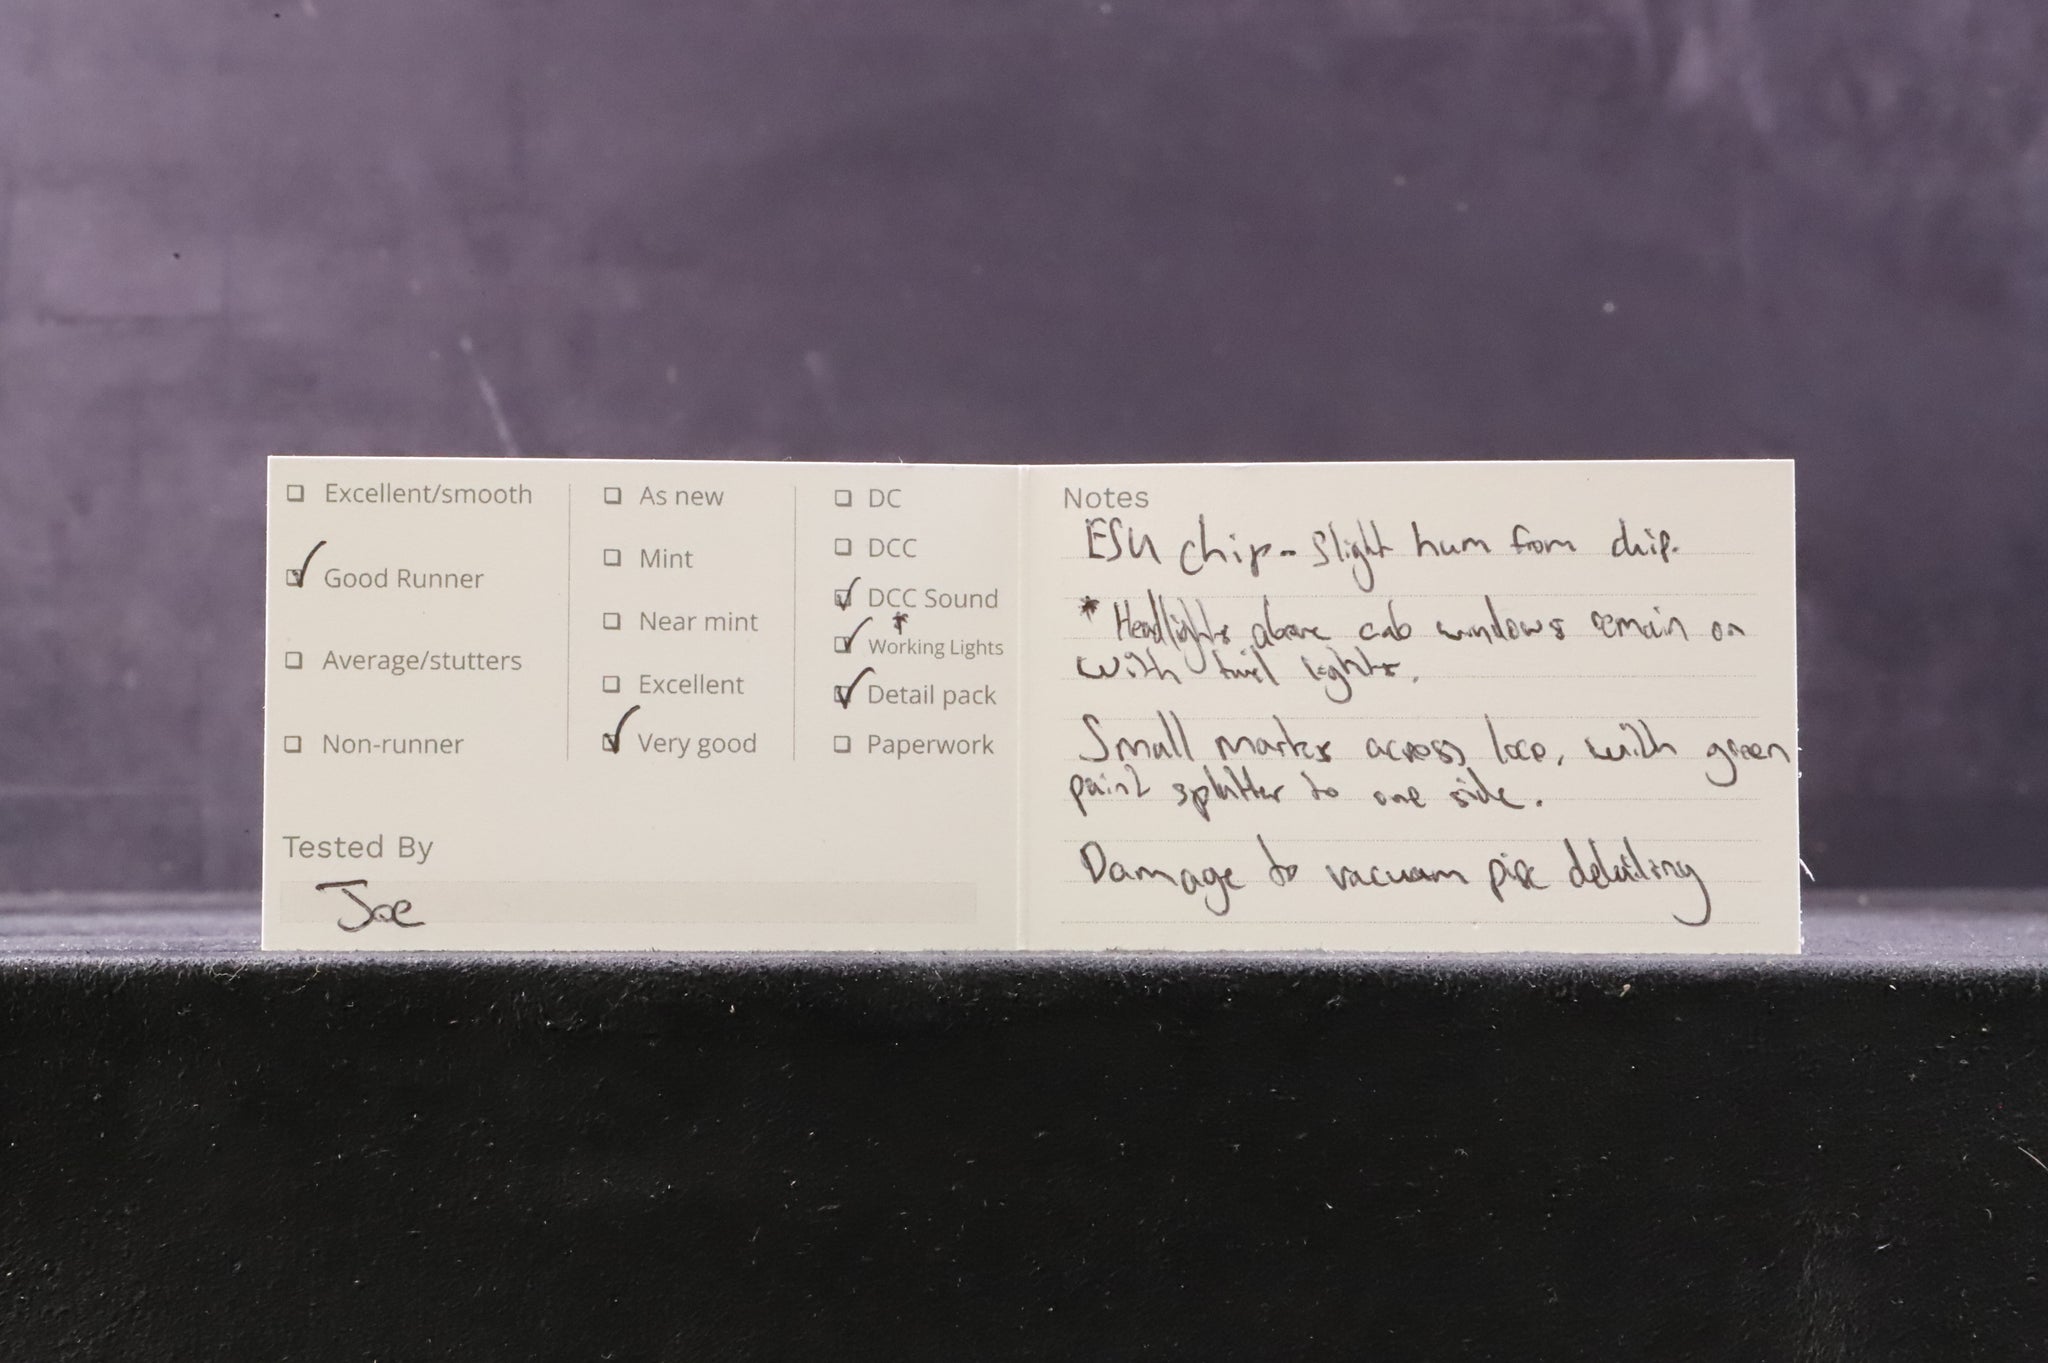 ☐ Excellent/smooth
☑ Good Runner
☐ Average/stutters
☐ Non-runner
☐ As new
☐ Mint
☐ Near mint
☐ Excellent
☑ Very good
☐ DC
☐ DCC
☑ DCC Sound
*
☑ Working Lights
☑ Detail pack
☐ Paperwork
Tested By
Joe
Notes
ESU chip - slight hum from chip.
* Headlights above cab windows remain on
with tail lights.
Small marks across loco, with green
paint splatter to one side.
Damage to vacuum pipe detailing